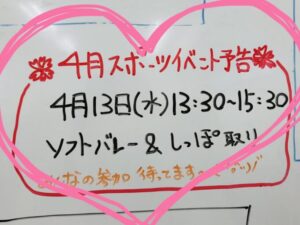 4月スポーツイベント予告
4月13日(水)13:30~15:30
ソフトバレー&しっぽ取り
みんなの参加 待ってます